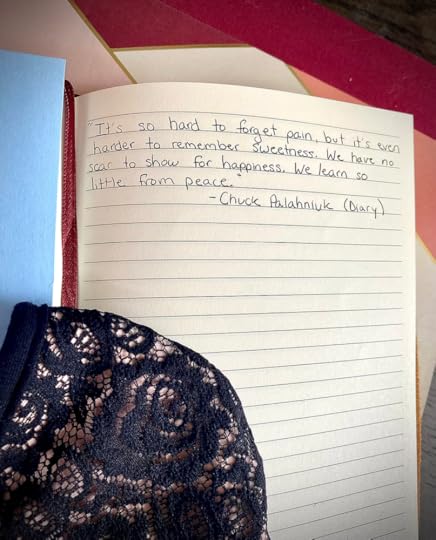 "It's so hard to forget pain, but it's even
harder to remember sweetness. We have no
scar to show for happiness. We learn so
little from peace."
- Chuck Palahniuk (Diary)